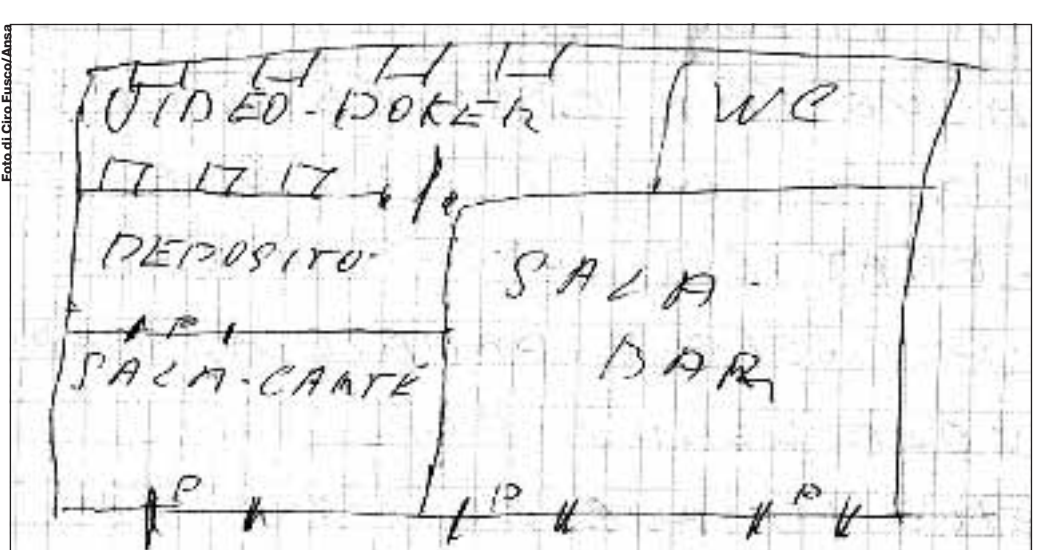 Foto di Ciro Fusco/Ansa
VIDEO-POKER
WC
DEPOSITO
SALA
BAR
P
SALA-CARTE
P
P
P